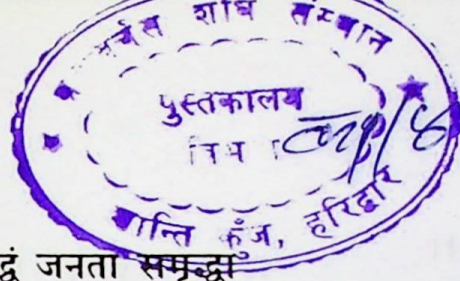 र्चस शोध संस्थान
पुस्तकालय
शान्ति कुंज, हरिद्वार
द्धं जनता समृद्धा